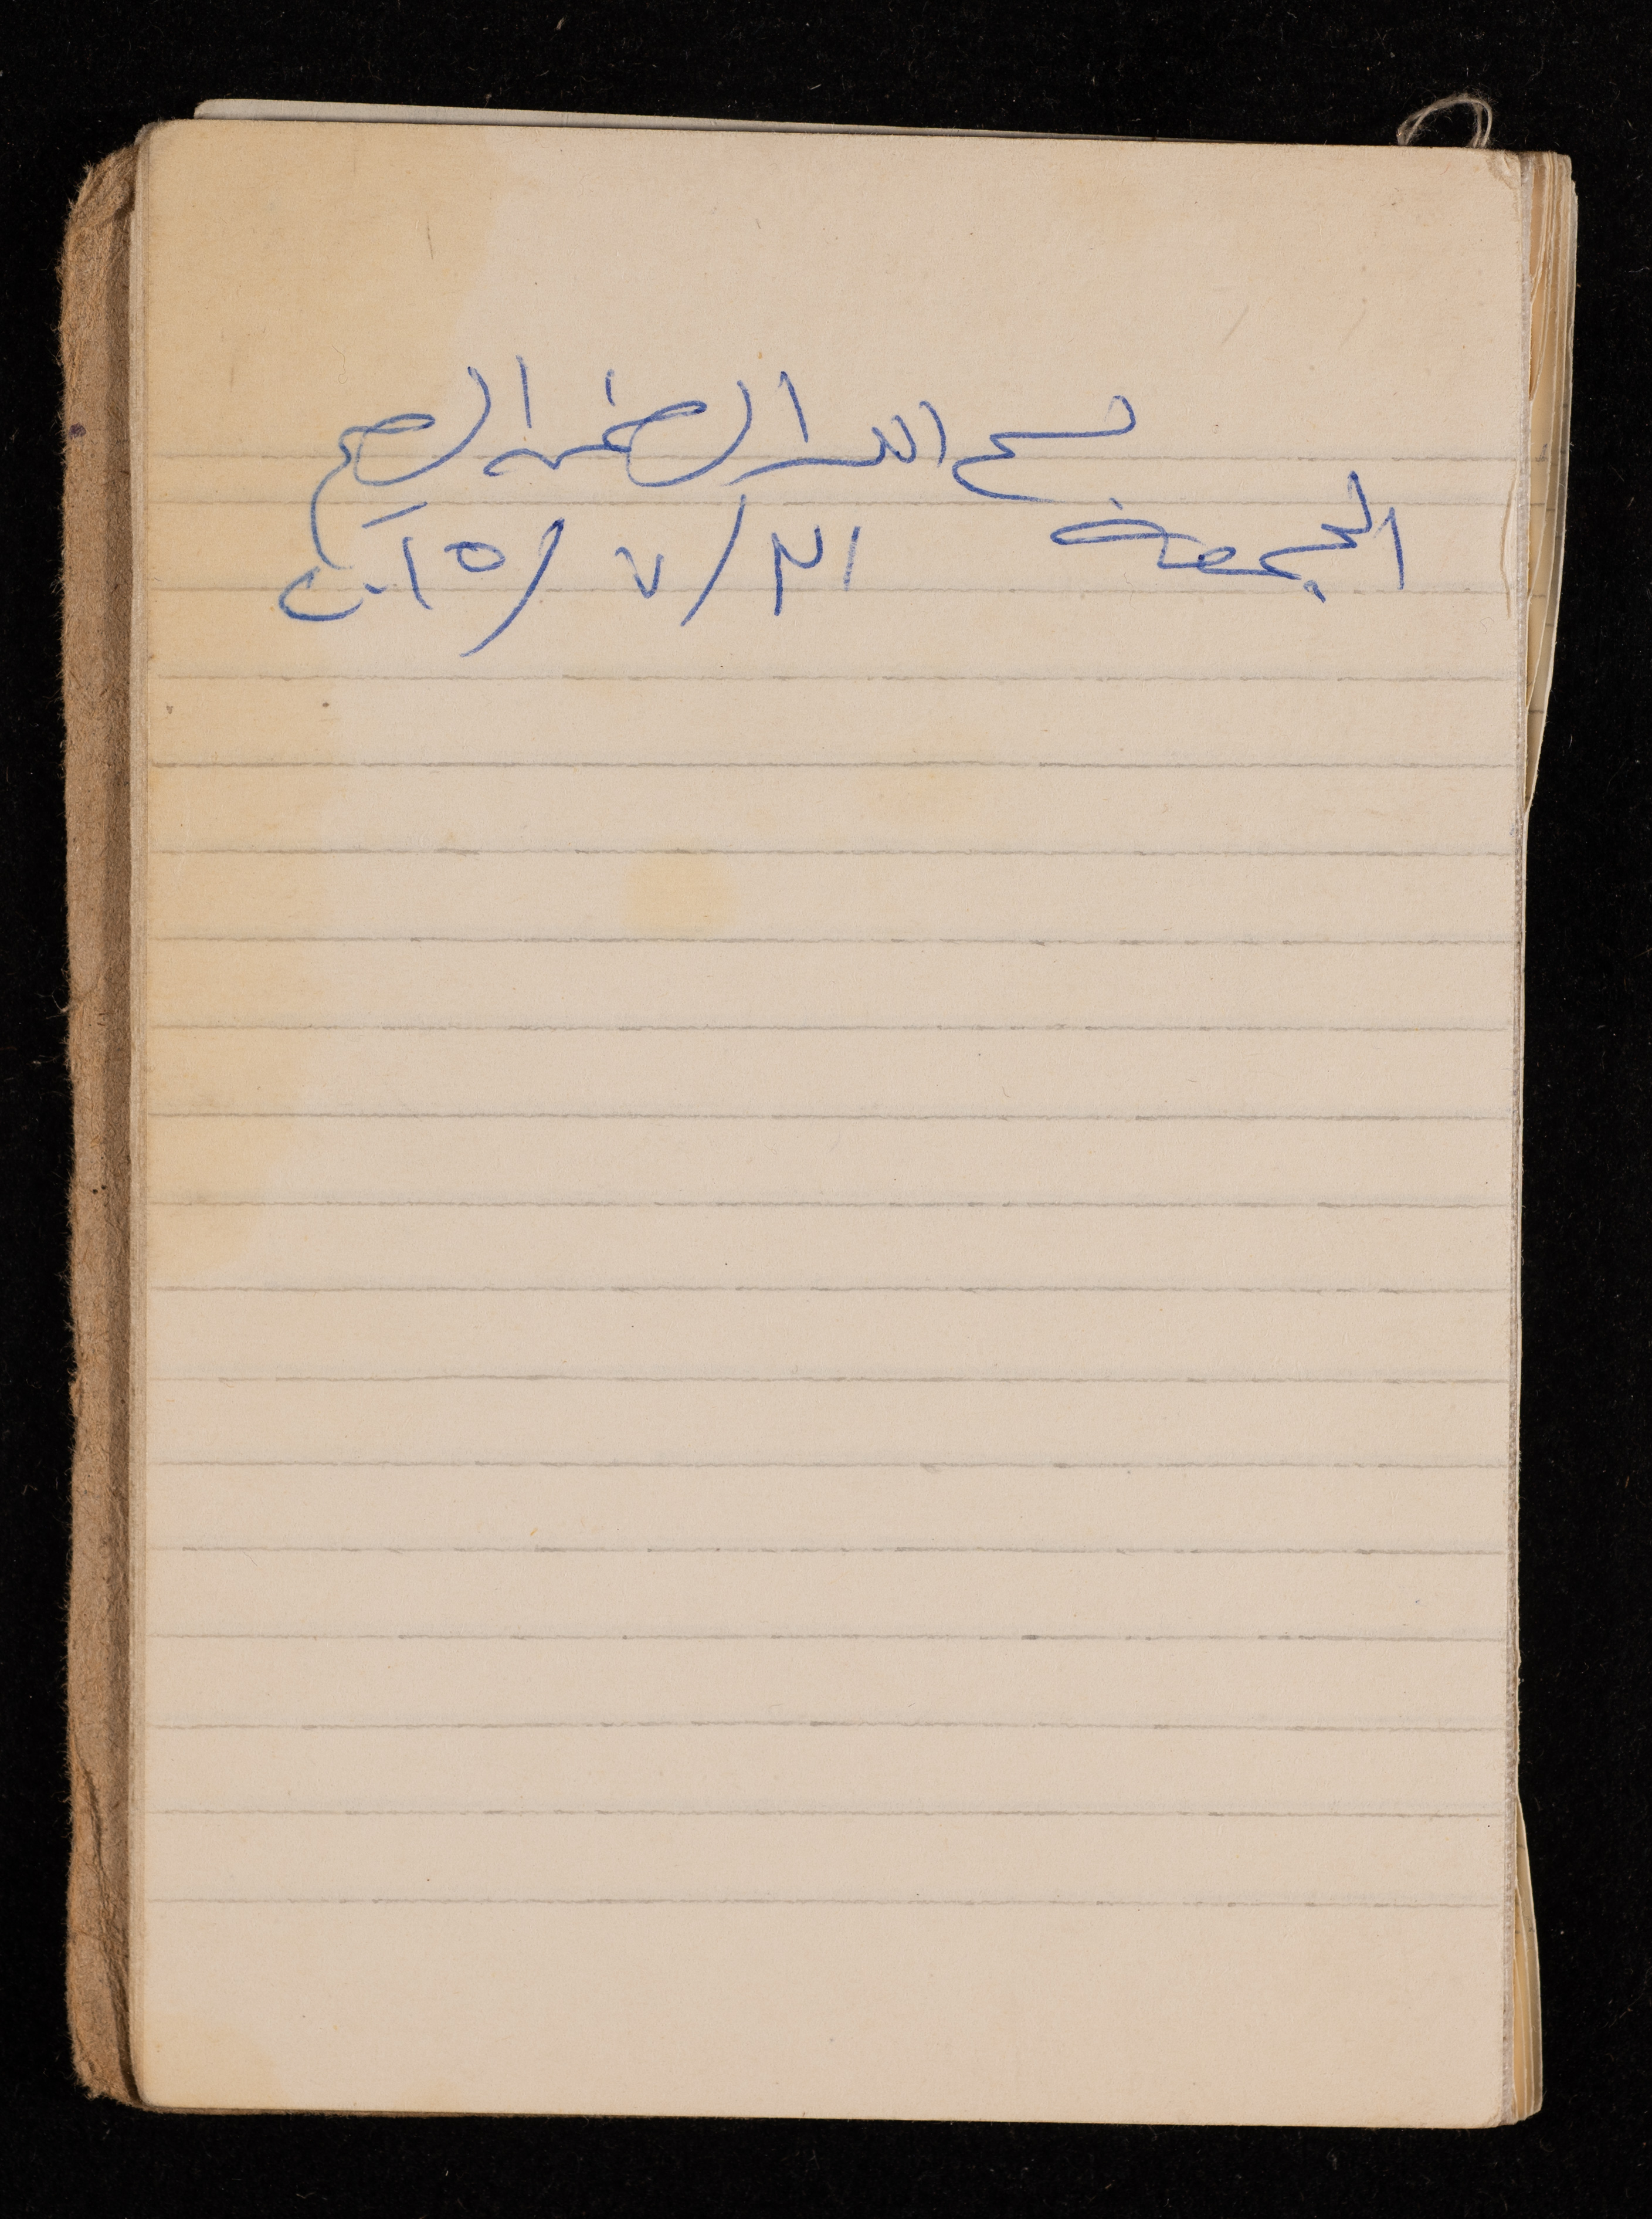 بسم الله الرحمن الرحيم
الجمعة ٣١ / ٧ / ٢٠١٥